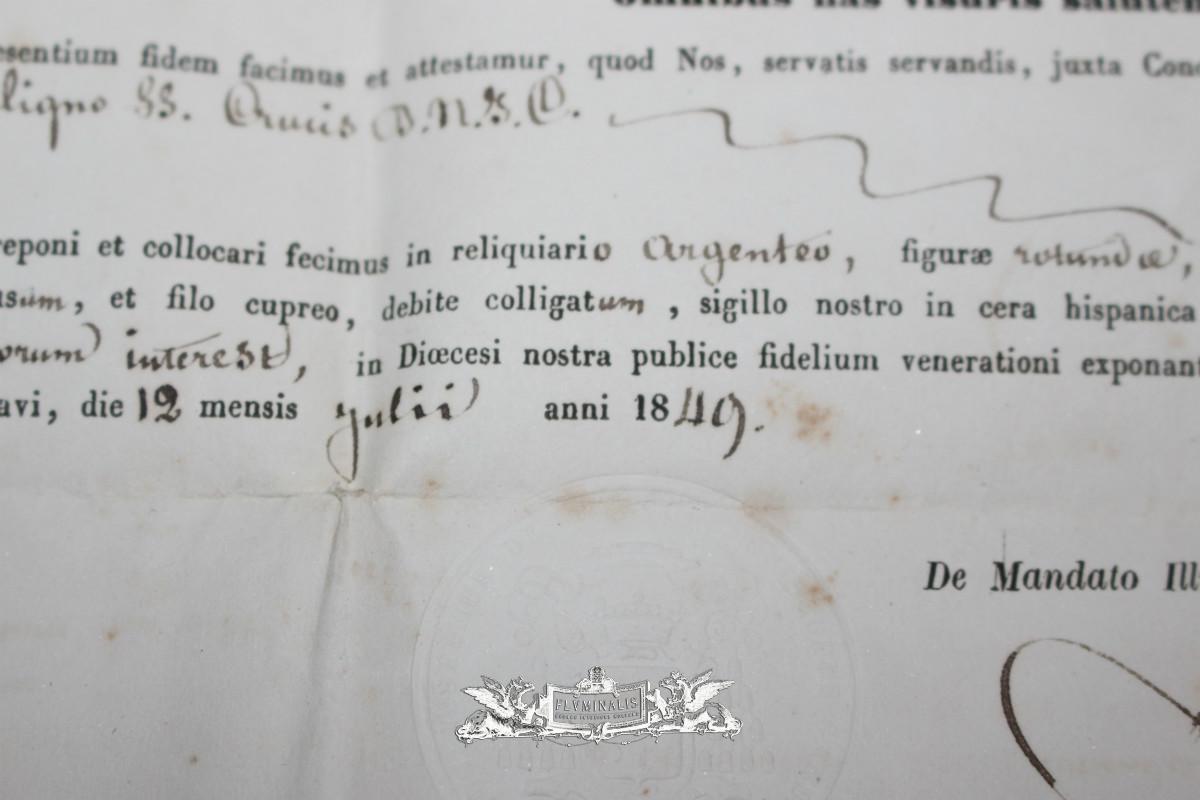 Omnibus has visuris salutem
esentium fidem facimus et attestamur, quod Nos, servatis servandis, juxta Conc
ligno SS. Crucis D.N.J.C.
reponi et collocari fecimus in reliquiario argenteo, figuræ rotundæ,
usum, et filo cupreo, debite colligatum, sigillo nostro in cera hispanica
orum interest, in Diœcesi nostra publice fidelium venerationi exponant
avi, die 12 mensis julii anni 1849.
De Mandato Ill
FLVMINALIS